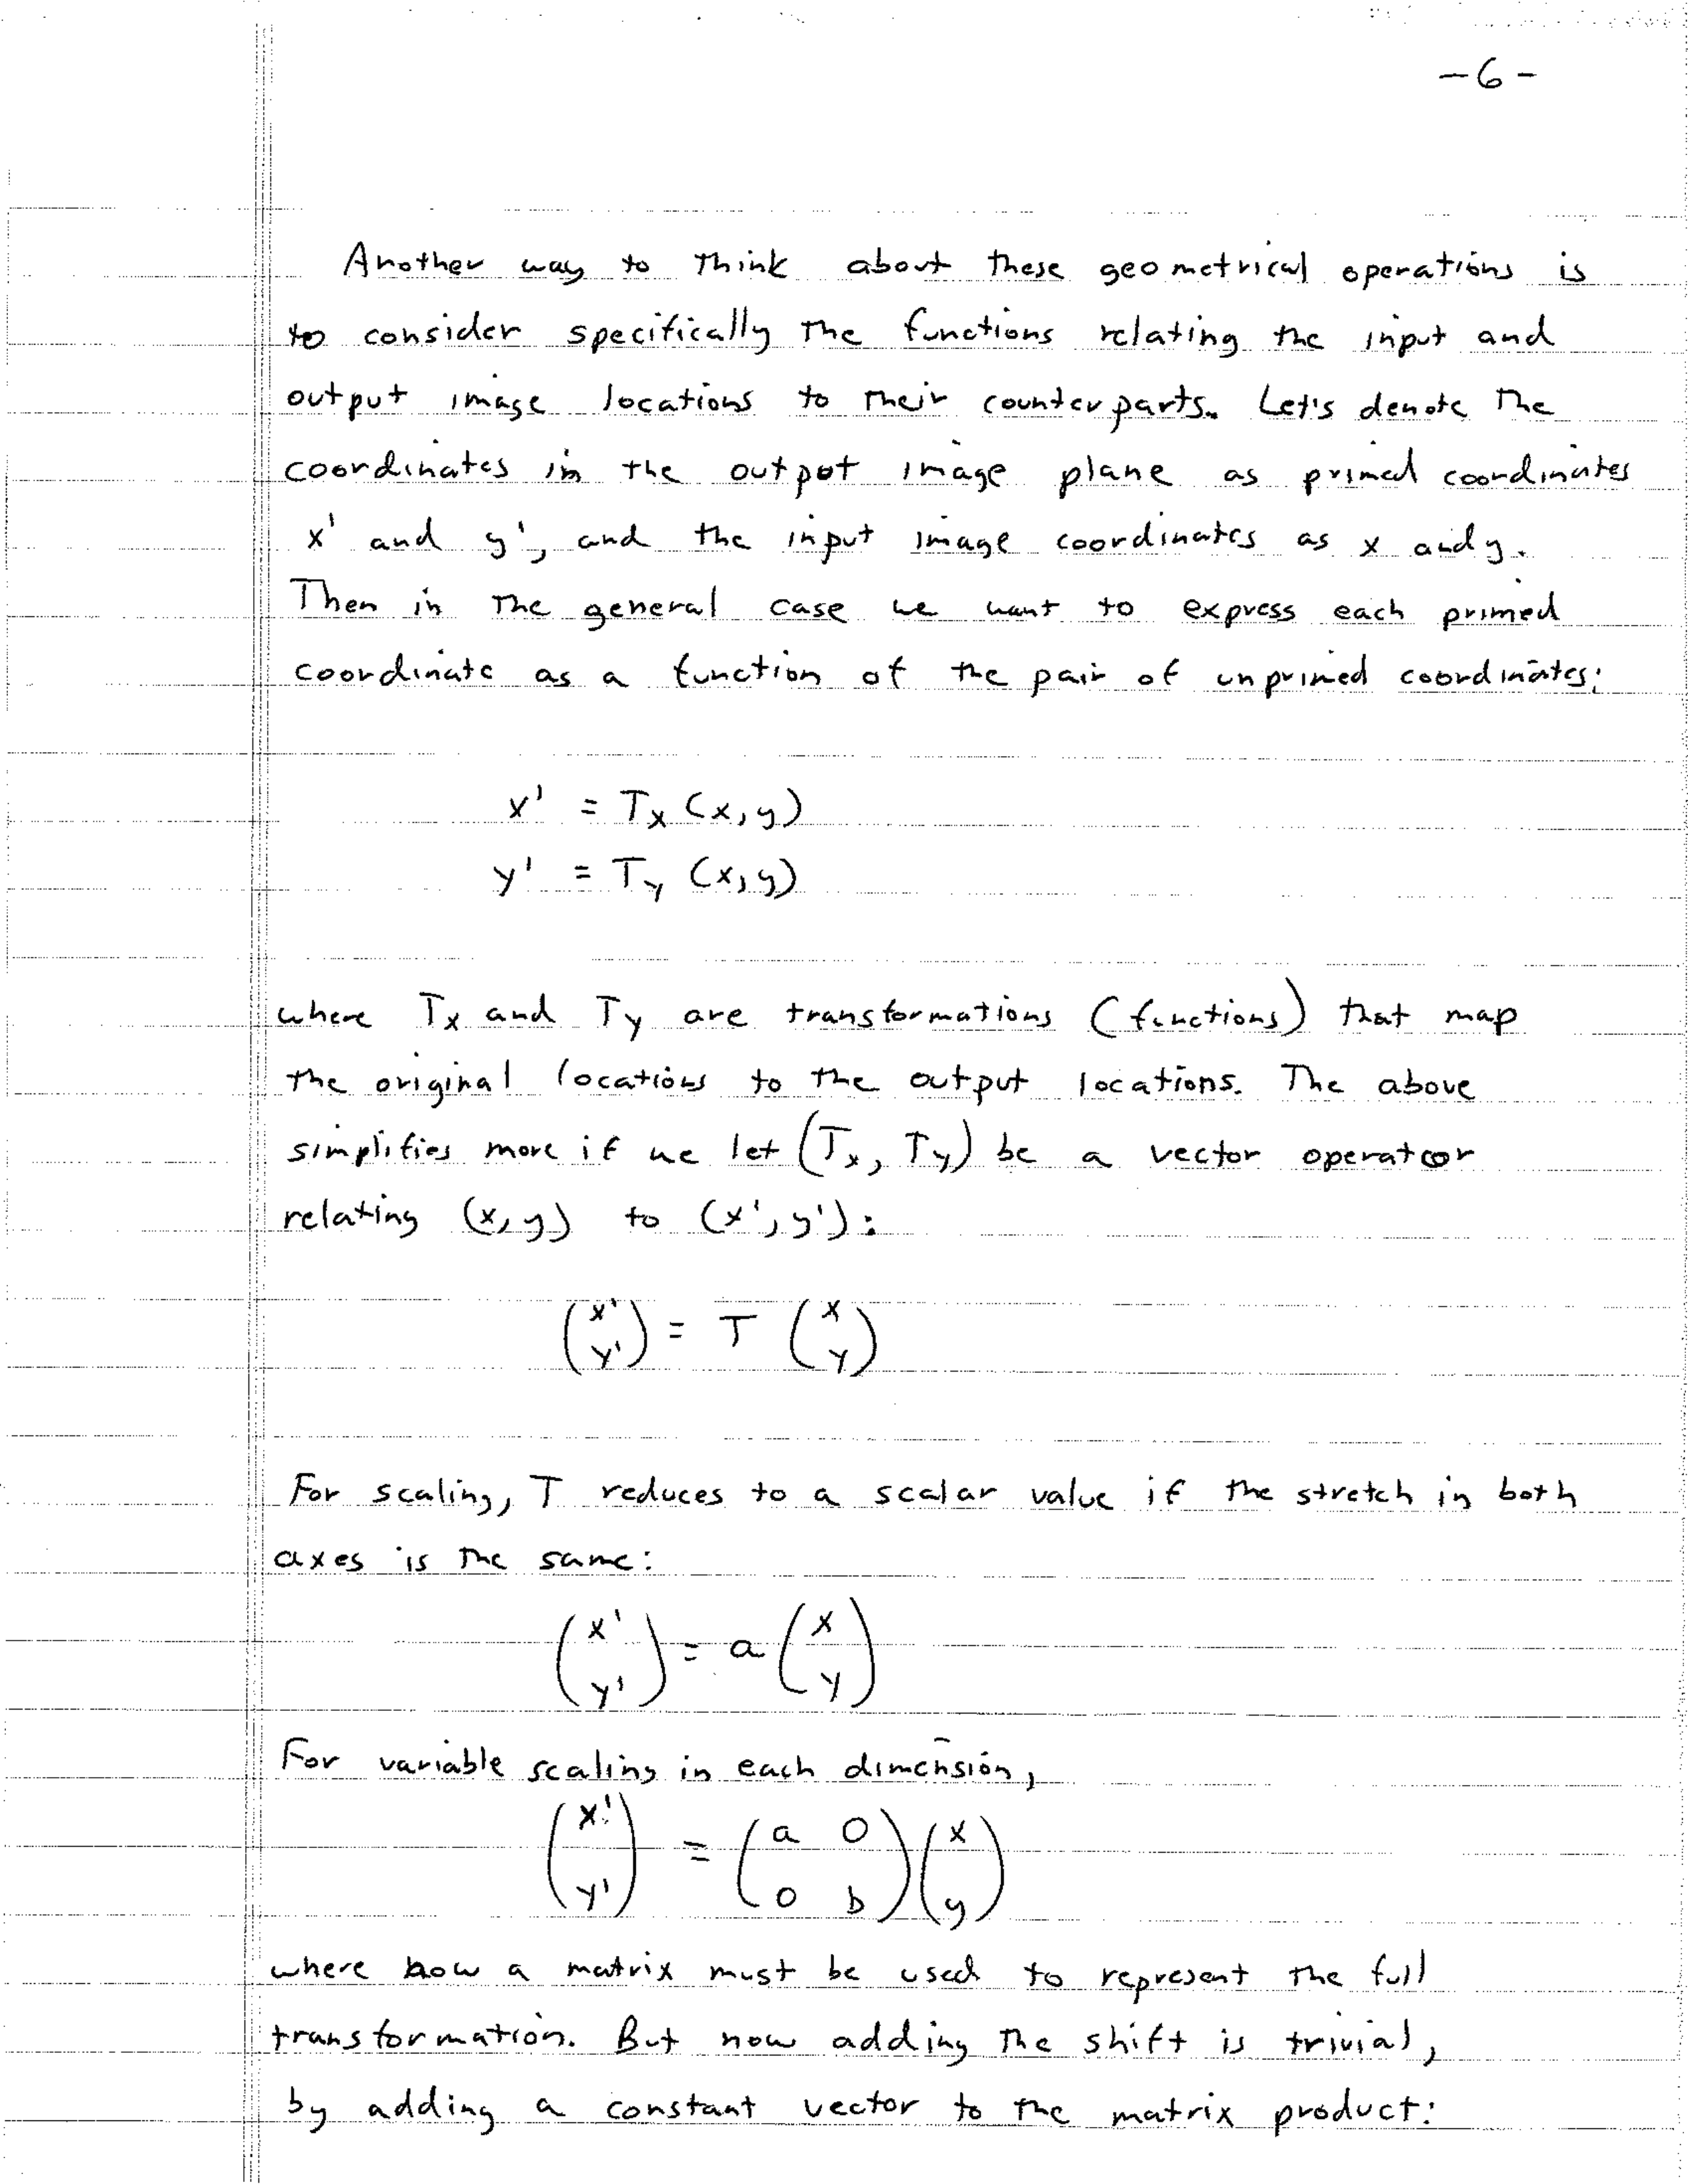 -6-
Another way to think about these geometrical operations is
to consider specifically the functions relating the input and
output image locations to their counterparts. Let's denote the
coordinates in the output image plane as primed coordinates
x' and y', and the input image coordinates as x and y.
Then in the general case we want to express each primed
coordinate as a function of the pair of unprimed coordinates:
x' = Tx (x,y)
y' = Ty (x,y)
where Tx and Ty are transformations (functions) that map
the original locations to the output locations. The above
simplifies more if we let (Tx, Ty) be a vector operator
relating (x,y) to (x',y'):
(x' y') = T (x y)
For scaling, T reduces to a scalar value if the stretch in both
axes is the same:
(x' y') = a (x y)
For variable scaling in each dimension,
(x' y') = (a 0 0 b) (x y)
where now a matrix must be used to represent the full
transformation. But now adding the shift is trivial,
by adding a constant vector to the matrix product: